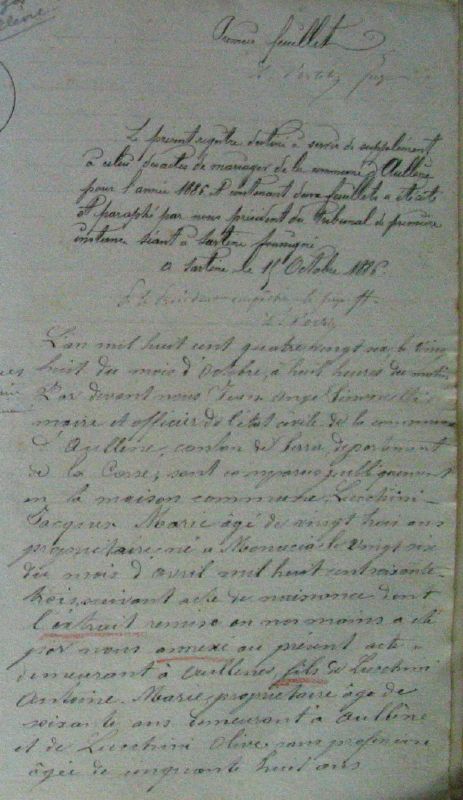 Premier feuillet
Le présent registre destiné à servir de supplément
à celui des actes de mariages de la commune d'Aullène
pour l'année 1886 et contenant deux feuillets a été coté
et paraphé par nous président du Tribunal de première
instance séant à Sartène soussigné
à Sartène le 15 Octobre 1886
L'an mil huit cent quatre vingt six, le vingt
huit du mois d'Octobre, à huit heures du matin
Par devant nous Jean Ange
maire et officier de l'état civile de la commune
d'Aullène, canton de Serra, département
de la Corse, sont comparus publiquement
en la maison commune, Lucchini
Jacques Marie âgé de vingt trois ans
propriétaire né à Monacia le vingt six
du mois d'avril mil huit cent soixante
trois, suivant acte de naissance dont
l'extrait remise en nos mains a été
par nous annexé au présent acte
demeurant à Aullène, fils de Lucchini
Antoine Marie, propriétaire âgé de
soixante ans demeurant à Aullène
et de Lucchini Olive, sans profession
âgée de cinquante huit ans